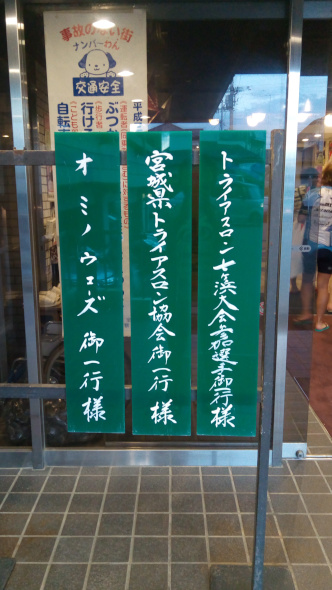 トライアスロン七ヶ浜大会参加選手御一行様
宮城県トライアスロン協会御一行 様
オミノウェーズ 御一行 様
事故のない街
ナンバーわん
交通安全
平成